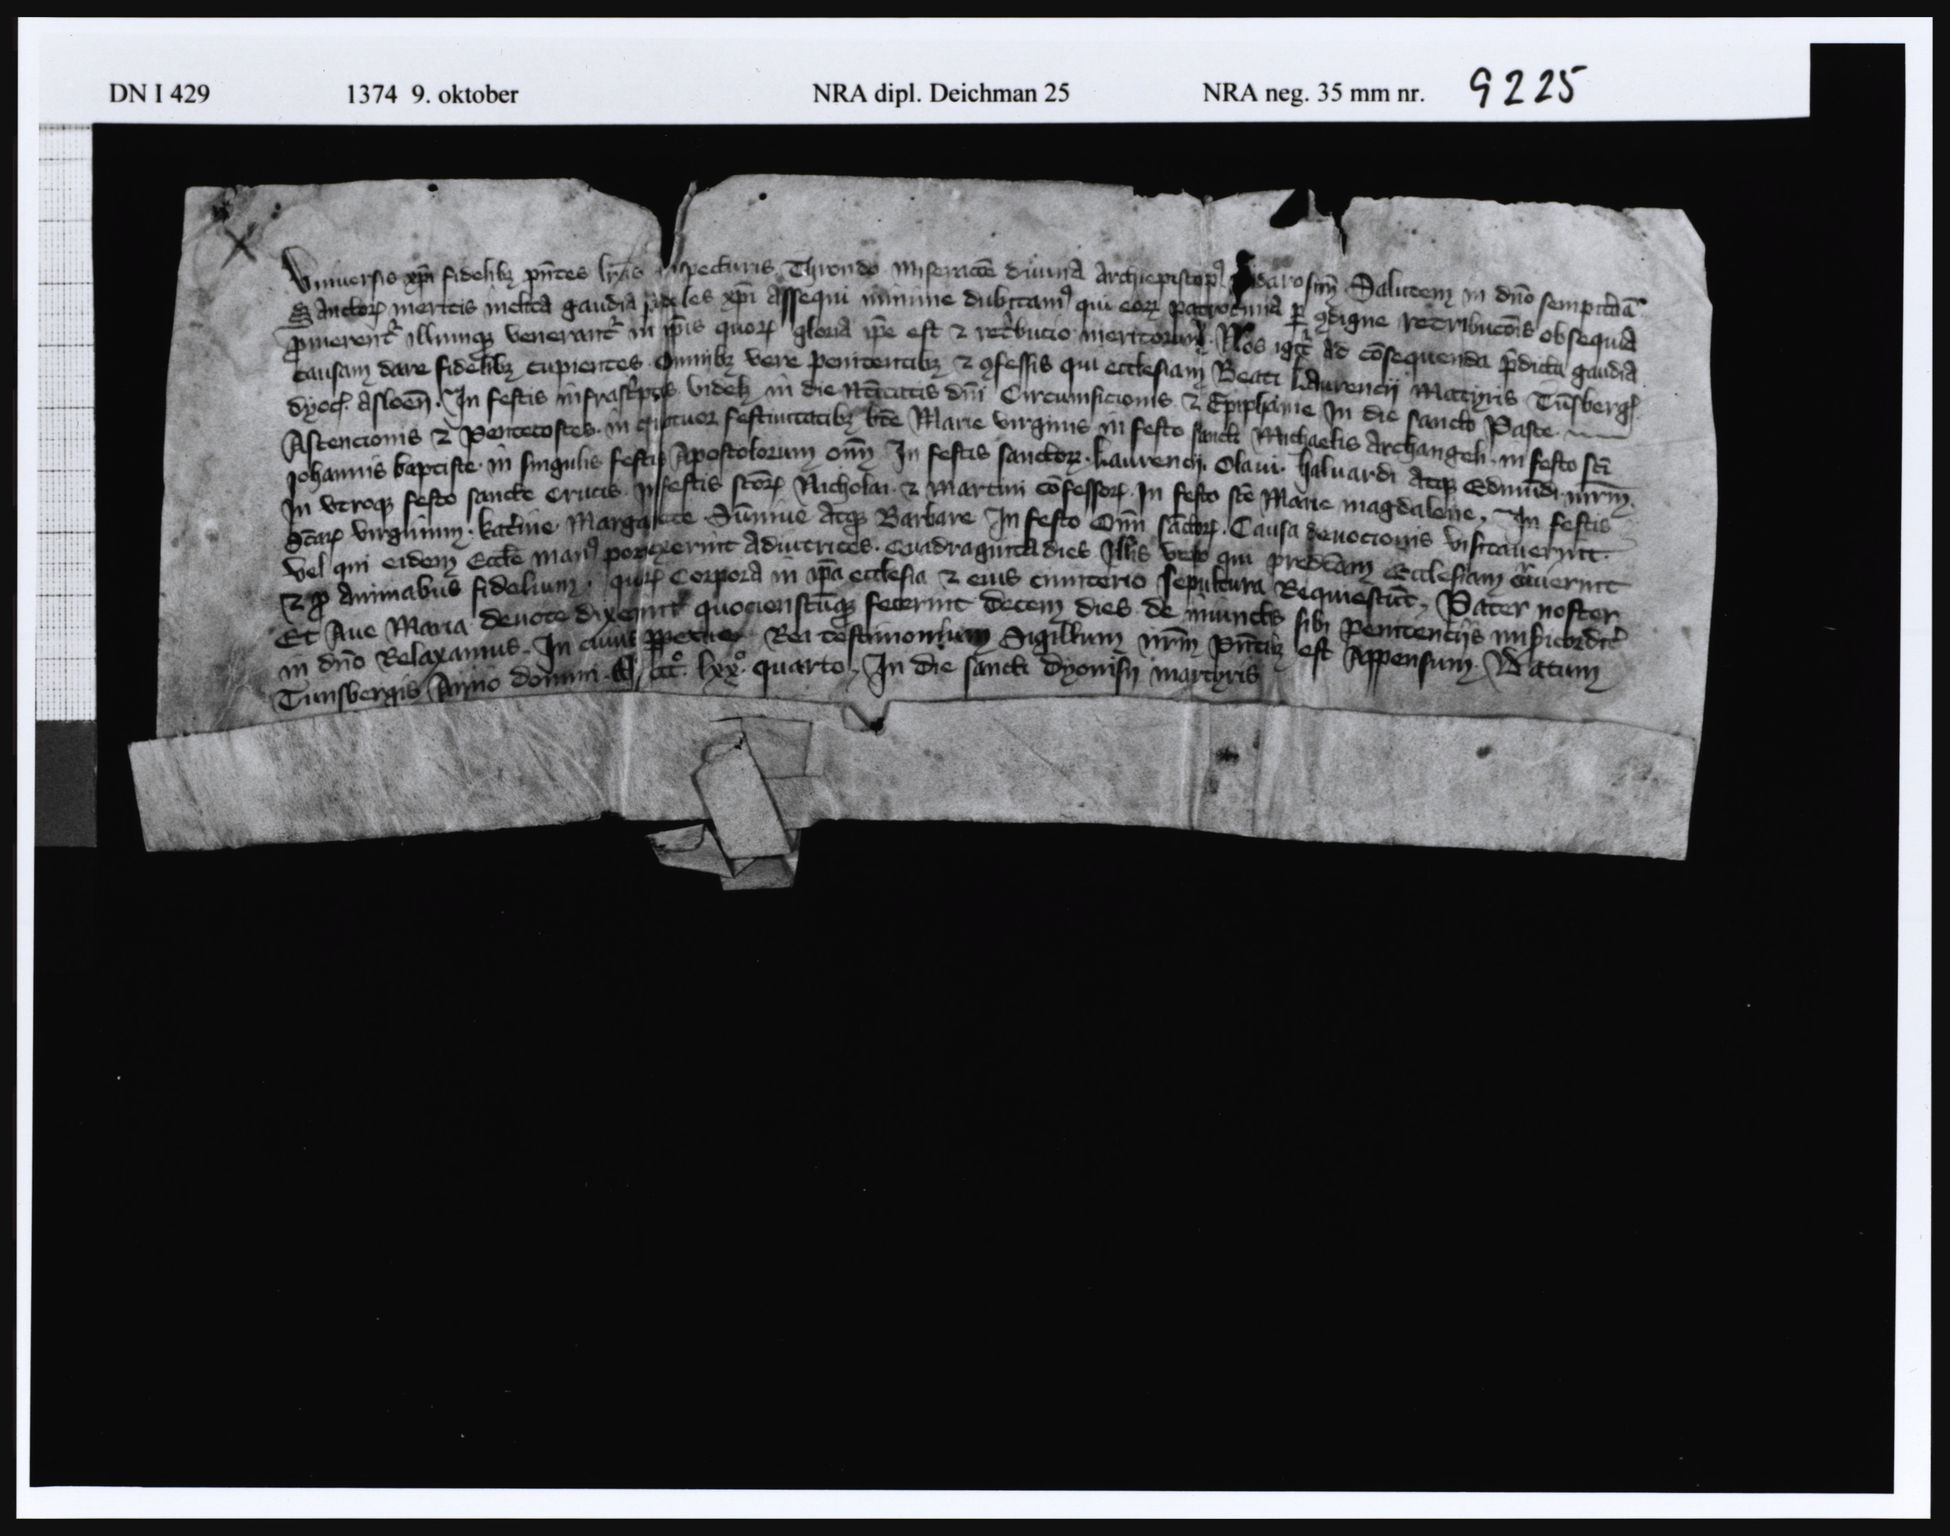 DN I 429 1374 9. oktober NRA dipl. Deichman 25 NRA neg. 35 mm nr. 9225
Vniuersis xp̄i fidelibꝫ pn̄tes lr̄as inspecturis Throndo miserac̄oe diuina Archiepiscopꝰ Nidarosien̄ Salutem in dn̄o sempit̄nā
Sanctorꝝ meritis inclita gaudia fideles xp̄i Assequi minime dubitamꝰ qui eorꝝ patrocinia ꝑ ꝯdigne retribuc̄ois obsequia
ꝓmerent᷑ illumqꝫ venerant᷑ in ip̄is quorꝝ gloria ip̄e est ⁊ ret'bucio meritorum. Nos igit᷑ Ad cōsequenda p̄dicta gaudia
causam dare fidelibꝫ cupientes Omnibꝫ vere penitentibꝫ ⁊ ꝯfessis qui ecclesiam Beati Laurencij Martyris Tūsbergꝭ
dyocꝭ Asloēn. In festis infrasc̄ptis videlꝫ in die Nātitatis dn̄i Circumsicionis ⁊ Epiphanie In die sancto Pasce
Ascencionis ⁊ Pentecostes in quatuor festiuitatibꝫ bt̄e Marie virginis in festo sancti Michaelis Archangeli in festo sc̄i
Johannis baptiste in singulis festis Apostolorum om̄i In festis sanctorꝝ Laurencij. Olaui. haluardi atqꝫ Edmūdi mr̄m.
In vtroqꝫ festo sancte Crucis In festis sc̄orꝝ Nicholai ⁊ Martini cōfessorꝝ. In festo sc̄e Marie magdalene. In festis
Sc̄arꝝ virginum. kat'ine Margarete Sūniue Atqꝫ Barbare In festo Om̄i sāctorꝝ. Causa deuocionis visitauerint.
vel qui eidem Eccl̄e manꝰ porrexerint Adiutrices. Quadraginta dies Illis vero qui predc̄am Ecclesiam
⁊ ꝓ Animabus fidelium. quorꝝ Corpora in ip̄a ecclesia ⁊ eius cimiterio sepultura Requiescūt, Pater noster
Et Aue Maria deuote dixerint quocienscūqꝫ fecerint Decem dies de iniunctis sibi Penitencijs mis̄icordit᷑
in dn̄o Relaxamus. In cuius Rei testimonium Sigillum nr̄m pn̄tibꝫ est Appensum. Datum
Tunsbergis Anno domini M. ccc°. lxx°. quarto, In die sancti Dyonisij martyris